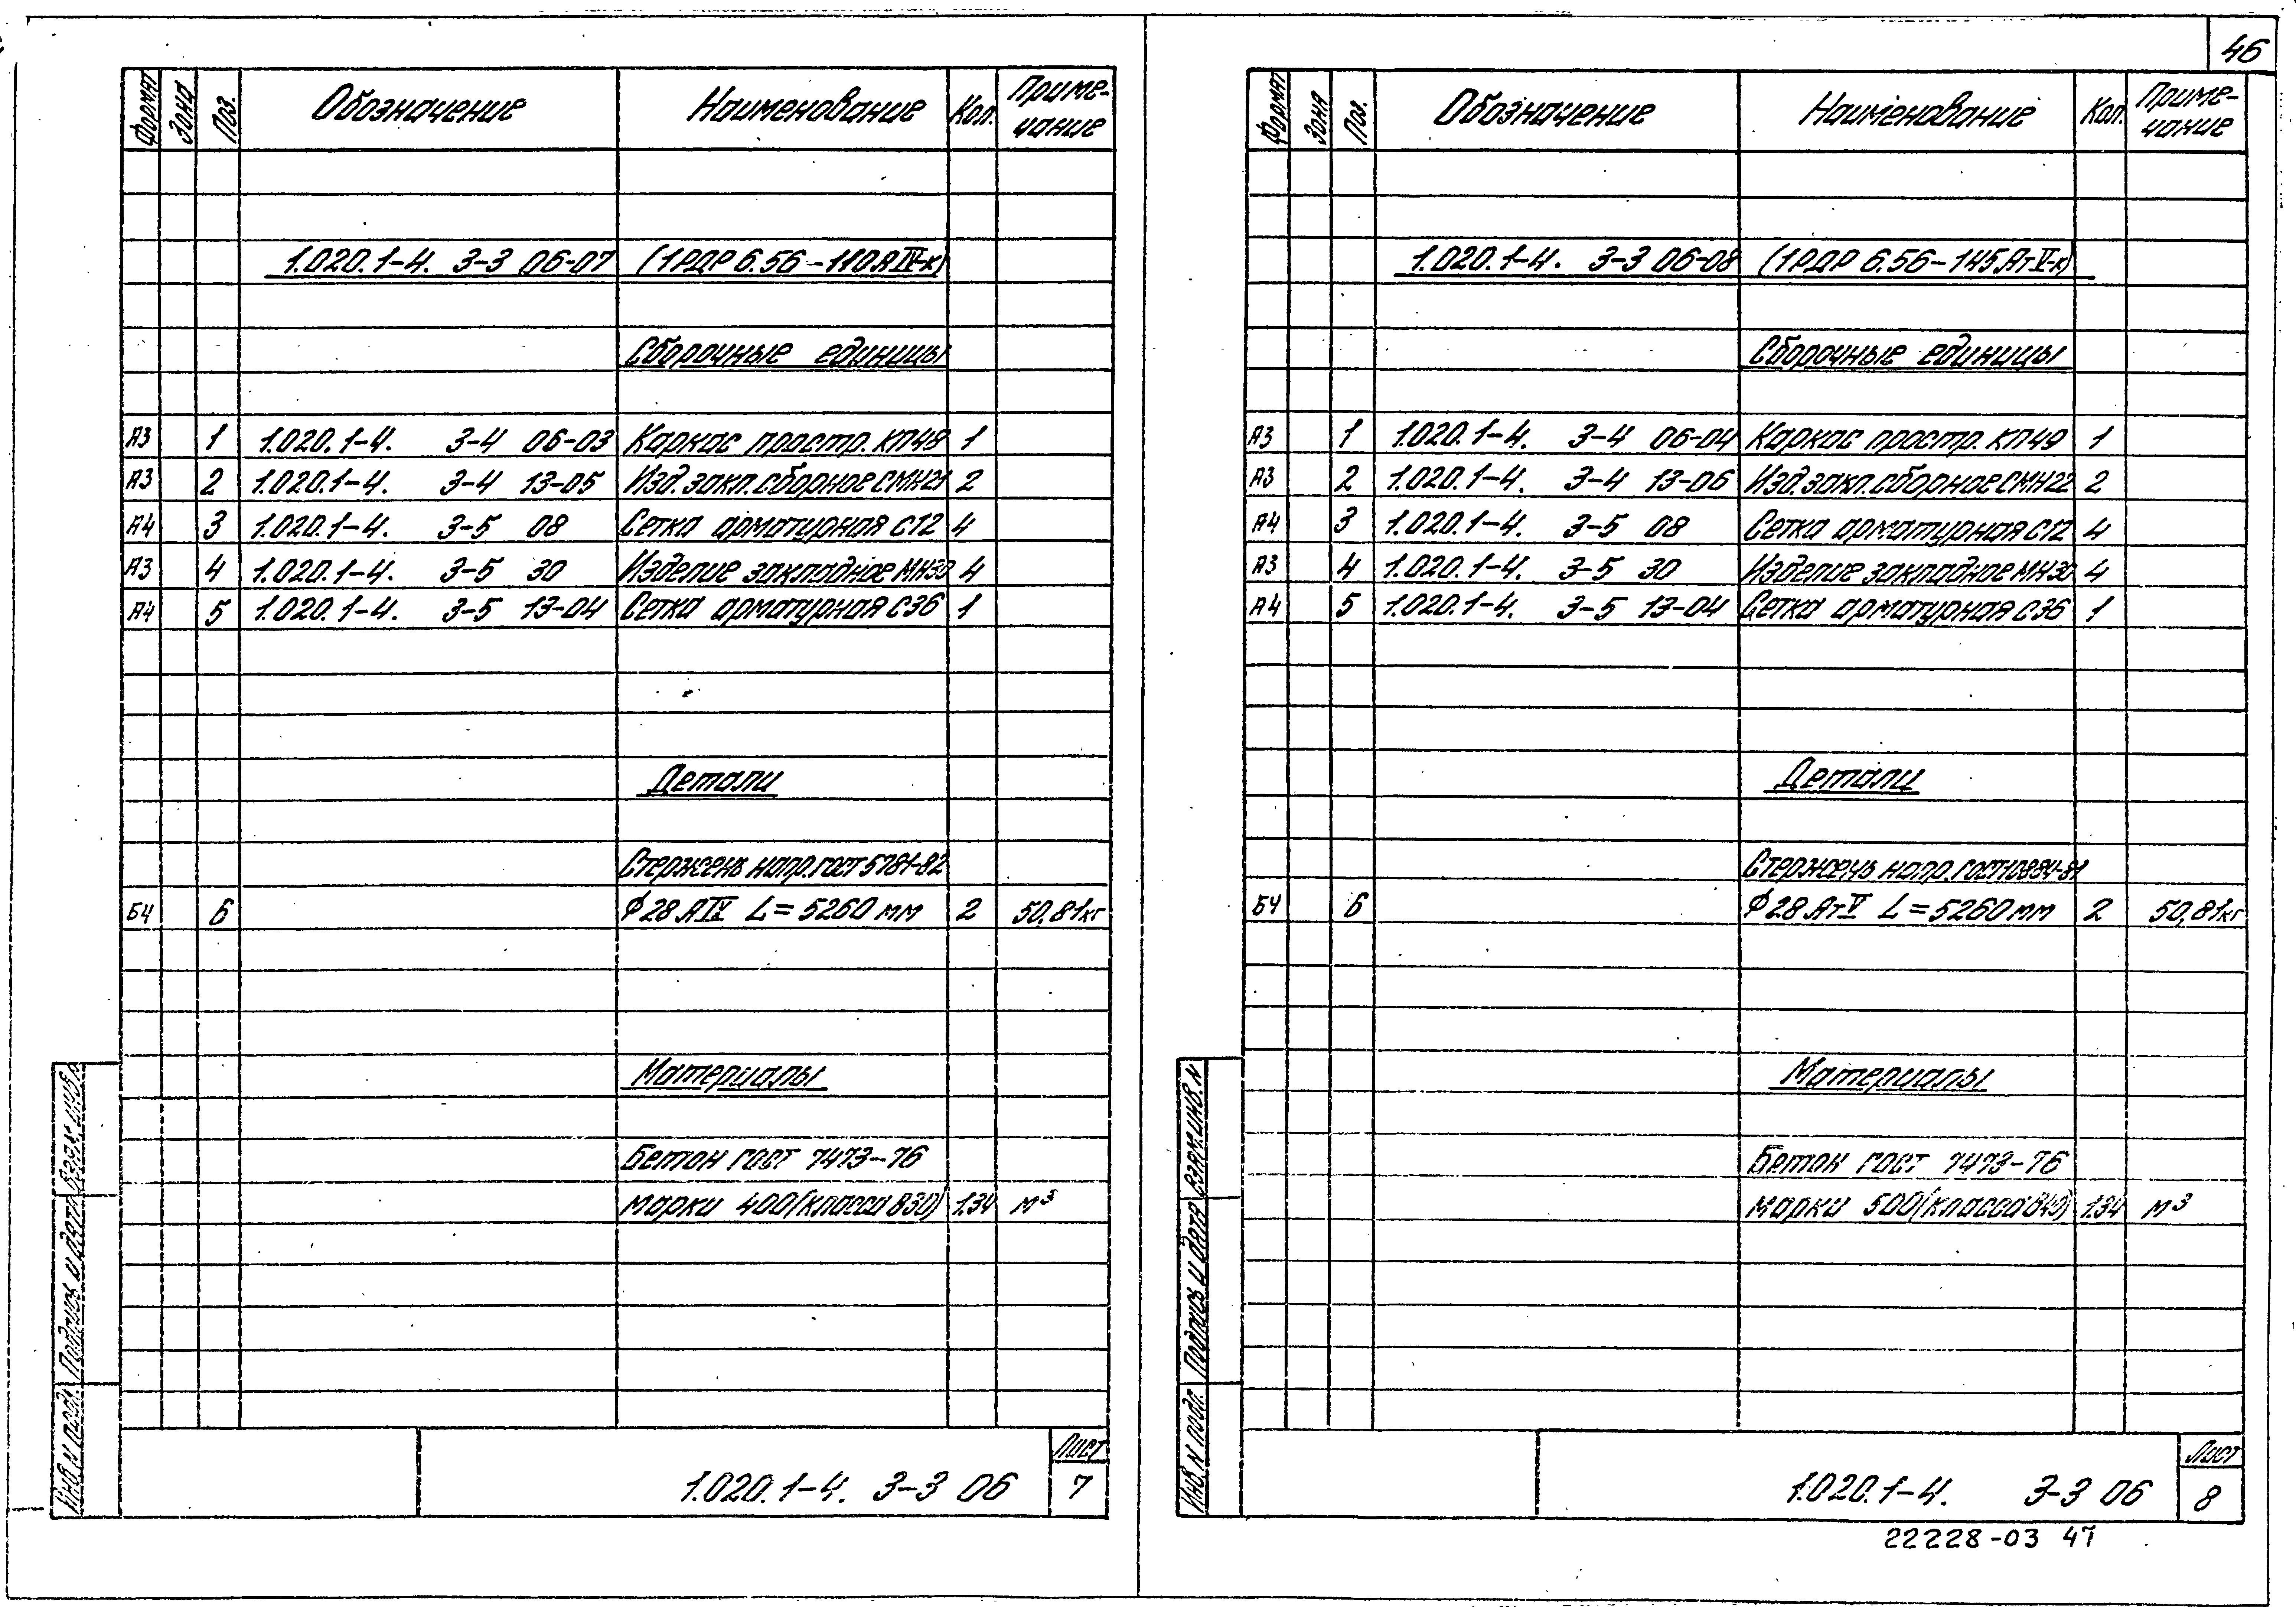 46
Формат Зона Поз. Обозначение Наименование Кол. Приме-
чание
1.020.1-4. 3-3 06-07 (1РДР 6.56-110АIV-к)
Сборочные единицы
А3 1 1.020.1-4. 3-4 06-03 Каркас простр. КП48 1
А3 2 1.020.1-4. 3-4 13-05 Изд. закл. сборное СМН21 2
А4 3 1.020.1-4. 3-5 08 Сетка арматурная С12 4
А3 4 1.020.1-4. 3-5 30 Изделие закладное МН30 4
А4 5 1.020.1-4. 3-5 13-04 Сетка арматурная С36 1
Детали
Стержень напр. ГОСТ 5781-82
БЧ 6 ϕ28 АIV L=5260 мм 2 50,81кг
Материалы
Бетон ГОСТ 7473-76
марки 400 (класса В30) 1.34 м³
Инв. N подл. Подпись и дата Взам. инв. N
1.020.1-4. 3-3 06
Лист
7
Формат Зона Поз. Обозначение Наименование Кол. Приме-
чание
1.020.1-4. 3-3 06-08 (1РДР 6.56-145АтV-к)
Сборочные единицы
А3 1 1.020.1-4. 3-4 06-04 Каркас простр. КП49 1
А3 2 1.020.1-4. 3-4 13-06 Изд. закл. сборное СМН22 2
А4 3 1.020.1-4. 3-5 08 Сетка арматурная С12 4
А3 4 1.020.1-4. 3-5 30 Изделие закладное МН30 4
А4 5 1.020.1-4. 3-5 13-04 Сетка арматурная С36 1
Детали
Стержень напр. ГОСТ 10884-81
БЧ 6 ϕ28 АтV L=5260 мм 2 50,81кг
Материалы
Бетон ГОСТ 7473-76
марки 500 (класса В40) 1.34 м³
Инв. N подл. Подпись и дата Взам. инв. N
1.020.1-4. 3-3 06
Лист
8
22228-03 47